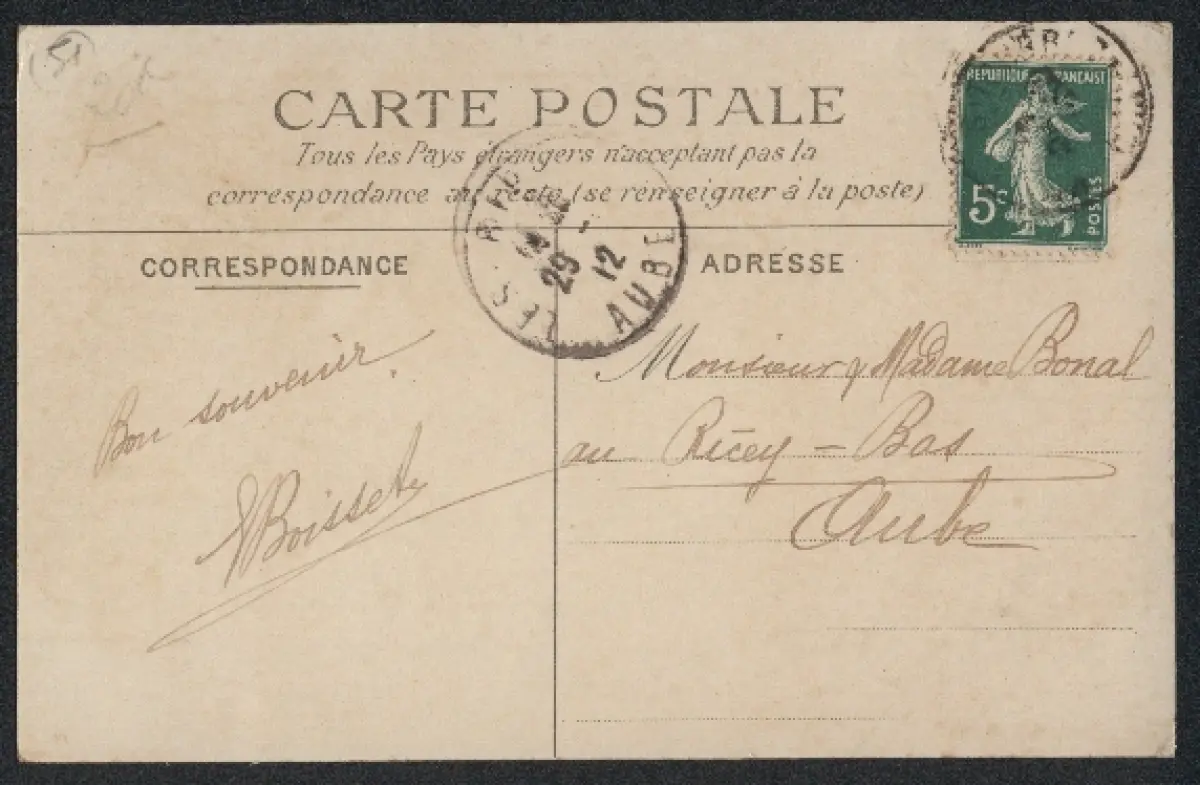 (51
CARTE POSTALE
Tous les Pays étrangers n'acceptent pas la
correspondance au recto (se renseigner à la poste)
REPUBLIQUE FRANÇAISE
5c
POSTES
LES
29
12
AUBE
CORRESPONDANCE
ADRESSE
Bon souvenir.
Boisset
Monsieur & Madame Bonal
au Ricey - Bas
Aube